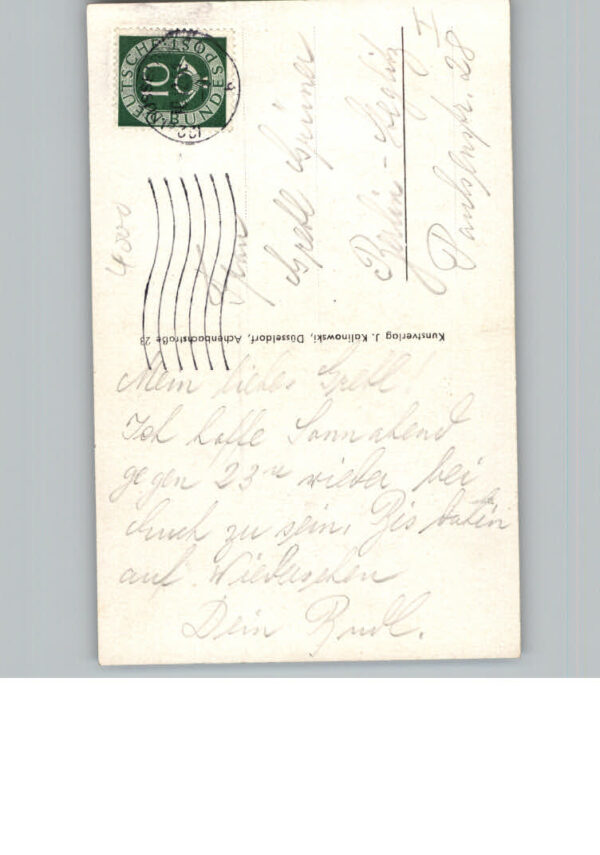 DEUTSCHE BUNDESPOST
10
4000
Frau
Gretl
Berlin - Steglitz
I
Paulsenstr. 28
Kunstverlag J. Kalinowski, Düsseldorf, Achenbachstraße 23
Mein liebes Gretl!
Ich hoffe Sonnabend
gegen 23 wieder bei
Euch zu sein. Bis dahin
auf Wiedersehen
Dein Rudl.